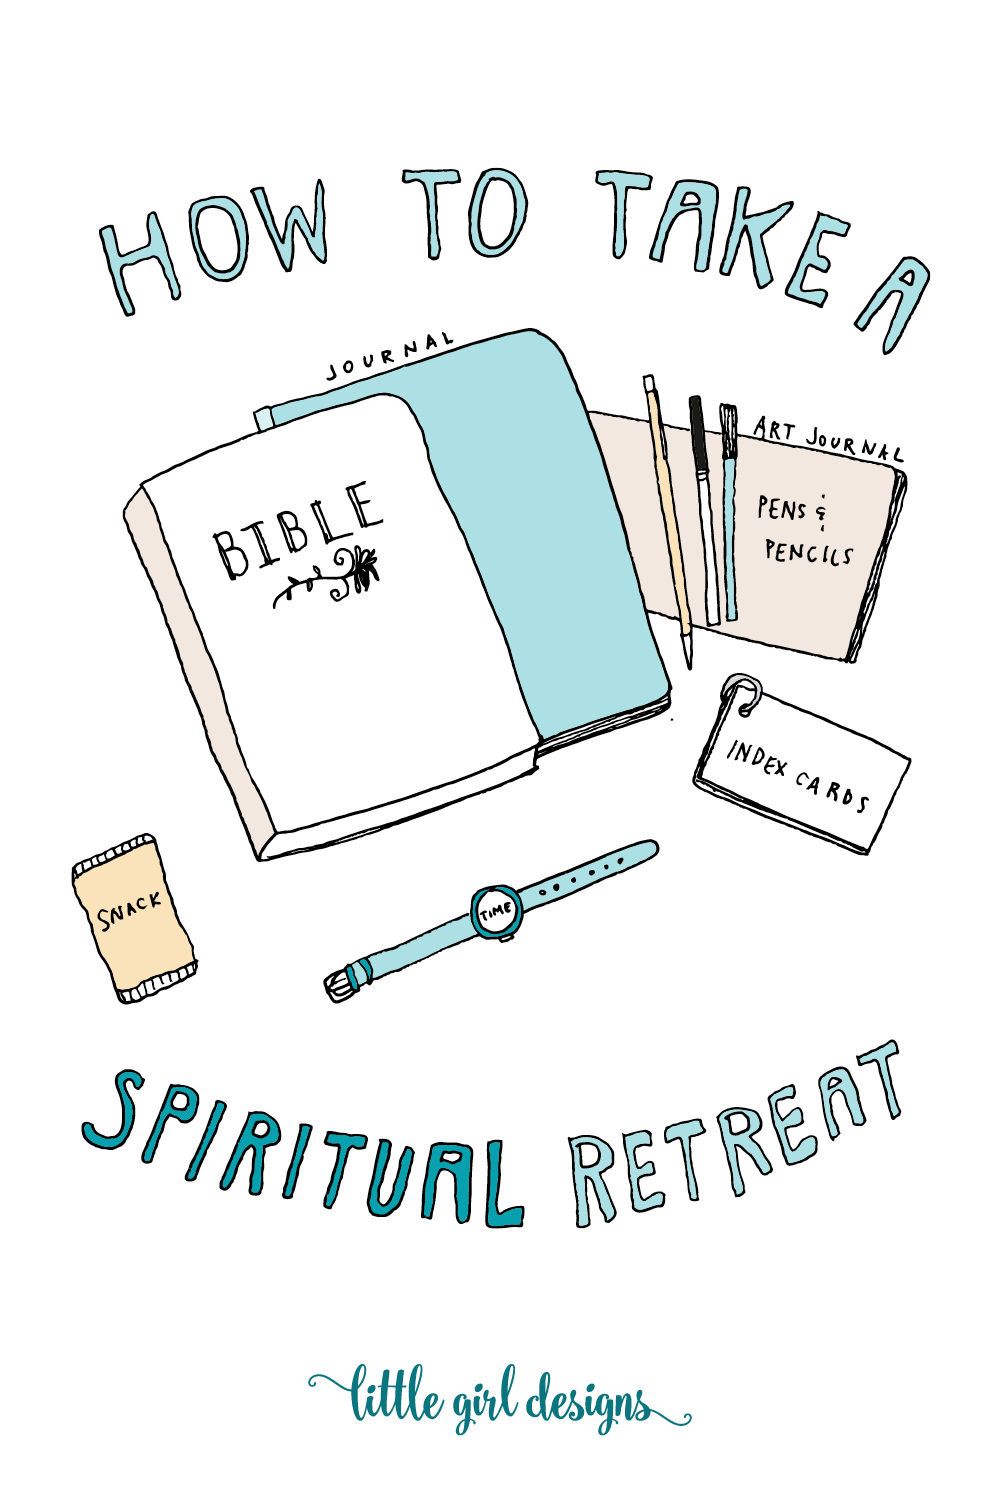 HOW TO TAKE A
JOURNAL
ART JOURNAL
BIBLE
PENS &
PENCILS
INDEX CARDS
SNACK
TIME
SPIRITUAL RETREAT
little girl designs